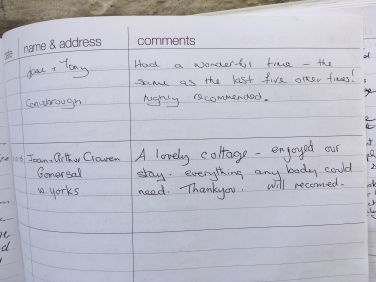 date name & address comments
+ Tony Had a wonderful time - the
same as the last five other times!
Conisbrough highly recommended.
Jean + Arthur Craven A lovely cottage - enjoyed our
Gomersal stay. everything any body could
W. Yorks need. Thankyou. will recomend.